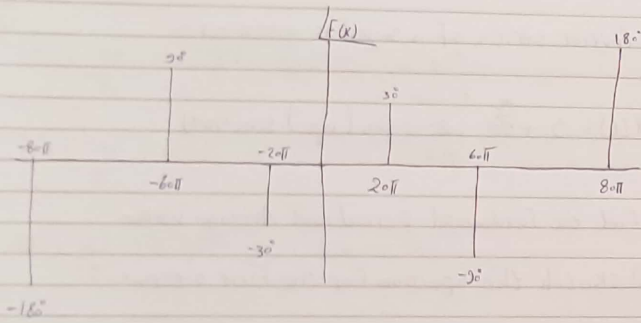 ∠F(x)
180°
90°
30°
-80π
-20π
60π
-60π
20π
80π
-30°
-90°
-180°